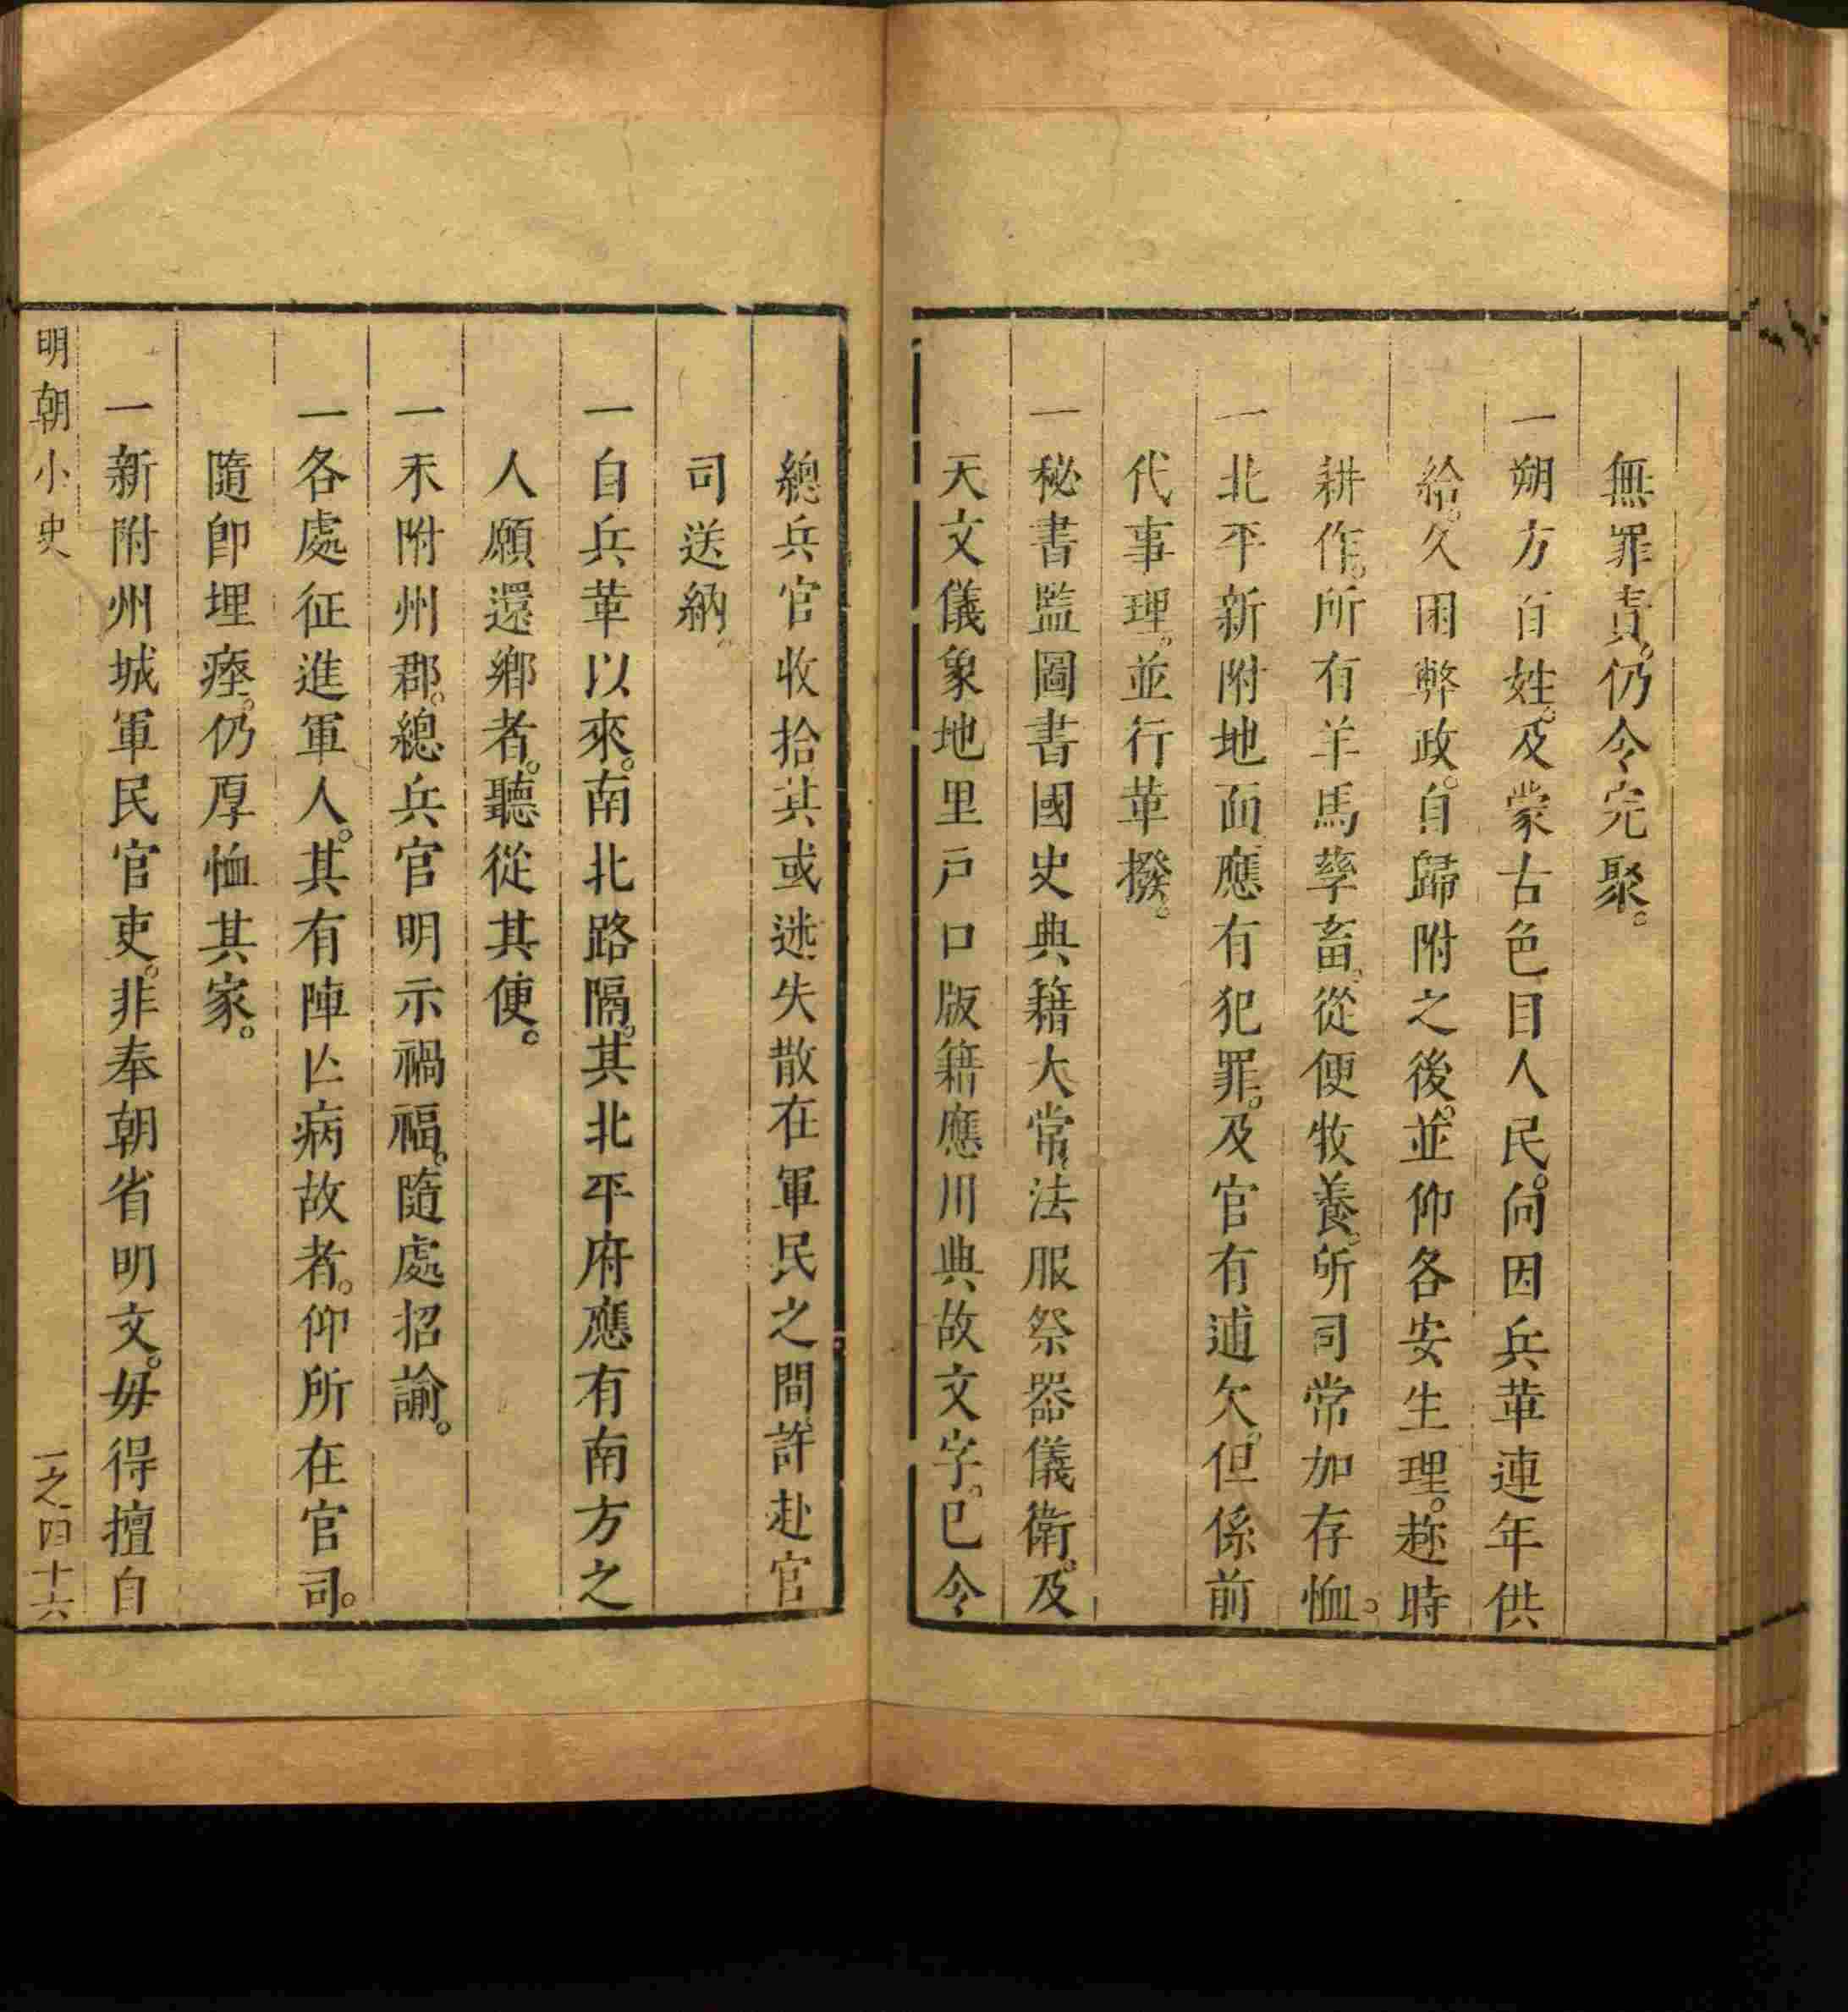 無罪責。仍令完聚。
一朔方百姓。及蒙古色目人民。向因兵革連年供
給。久困弊政。自歸附之後。並仰各安生理。趂時
耕作。所有羊馬孳畜。從便牧養。所司常加存恤。
一北平新附地面應有犯罪。及官有逋欠。但係前
代事理。並行革撥。
一秘書監圖書國史典籍大常法服祭器儀衛。及
天文儀象地里戸口版籍應用典故文字。已令
總兵官收拾其或迷失散在軍民之間許赴官
司送納。
一自兵革以來。南北路隔。其北平府應有南方之
人願還鄉者。聽從其便。
一未附州郡。總兵官明示禍福。隨處招諭。
一各處征進軍人。其有陣亡病故者。仰所在官司。
隨卽埋瘞。仍厚恤其家。
一新附州城軍民官吏。非奉朝省明文。毋得擅自
明朝小史
一之四十六